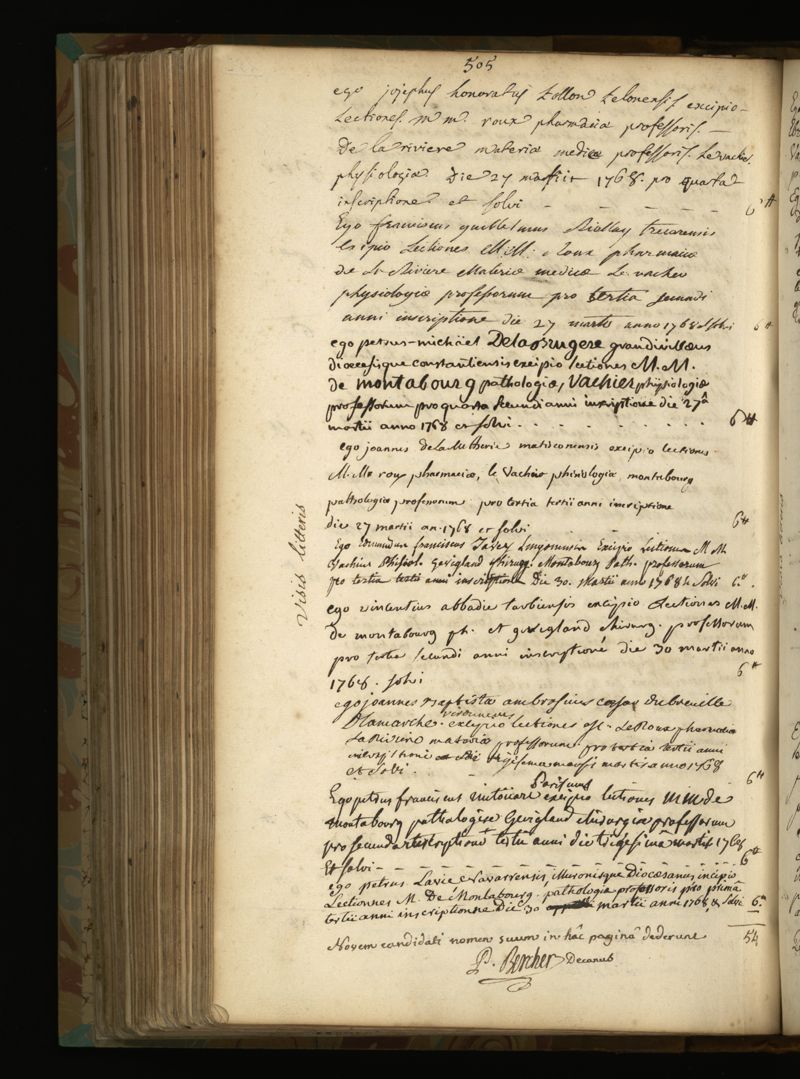 505
ego josephus honoratus tollon telonensis excipio
Lectiones. m m. roux pharmaciæ professoris.
De la riviere materiæ medicæ professoris. Le vacher
physiologiæ Die 27 martii 1768. pro quarta
inscriptione et solvi - - - - 6 ₶
Ego franciscus guillelmus Riollay trecorensis
excipio Lectiones M.M. Roux pharmaciæ
de la Riviere Materiæ medicæ Le vacher
physiologiæ professorum pro tertia secundi
anni inscriptione die 27 martii anno 1768 solvi 6 ₶
ego petrus-michäel Delabrugere grandivillæus
diœcesisque constantiensis excipio lectiones M.M.
de montabourg pathologiæ, vachier physiologiæ
professorum pro quarta secundi anni inscriptione die 27â
martii anno 1768 et solvi . . . . . . 6 ₶
ego joannes delaMetherie matisconensis excipio lectiones
M.M. roux pharmaciæ, le vacher phisiologiæ, montabourg
pathologiæ professorum pro tertia tertii anni inscriptione
die 27 martii an. 1768 et solvi 6 ₶
Visis litteris
Ego franciscus Excipio Lectiones M M.
Vachier Phisiol. Gevigland Chirurg. Montabourg Path. professorum
pro tertia tertii anni inscriptione Die 30. Martii anno 1768 & Solvi 6.₶
ego vincentius abbadie tarbiensis excipio Lectiones M.M.
de montabourg ph. et gevigland chirurg. professorum
pro tertia secundi anni inscriptione die 30 martii anno
1768. solvi 6 ₶
ego joannes Baptista ambrosius cæsar dubreuille
Dlamarche. virdunensis excipio lectiones LeRoux pharmaciæ
LaRiviere materiæ professorum pro tertia tertii anni
inscriptione die trigesima mensis martis anno 1768
et solvi. 6 ₶
Ego petrus franciscus parisinus excipio lectiones MM de
montabourg pathologiæ Gevigland chirurgiæ professorum
pro secunda inscriptione tertii anni die trigesimâ martii 1768
Et solvi - - - - - 6 ₶
ego petrus Lavie Navarrensis, Diœcesanus incipio
Lectionnes M. De Montabourg. pathologiæ professoris pro primâ
tertii anni inscriptionne Die 30 martii anni 1768 & Solvi 6.₶
54
Novem candidati nomen suum in hâc paginâ dederunt
P. Bercher Decanus